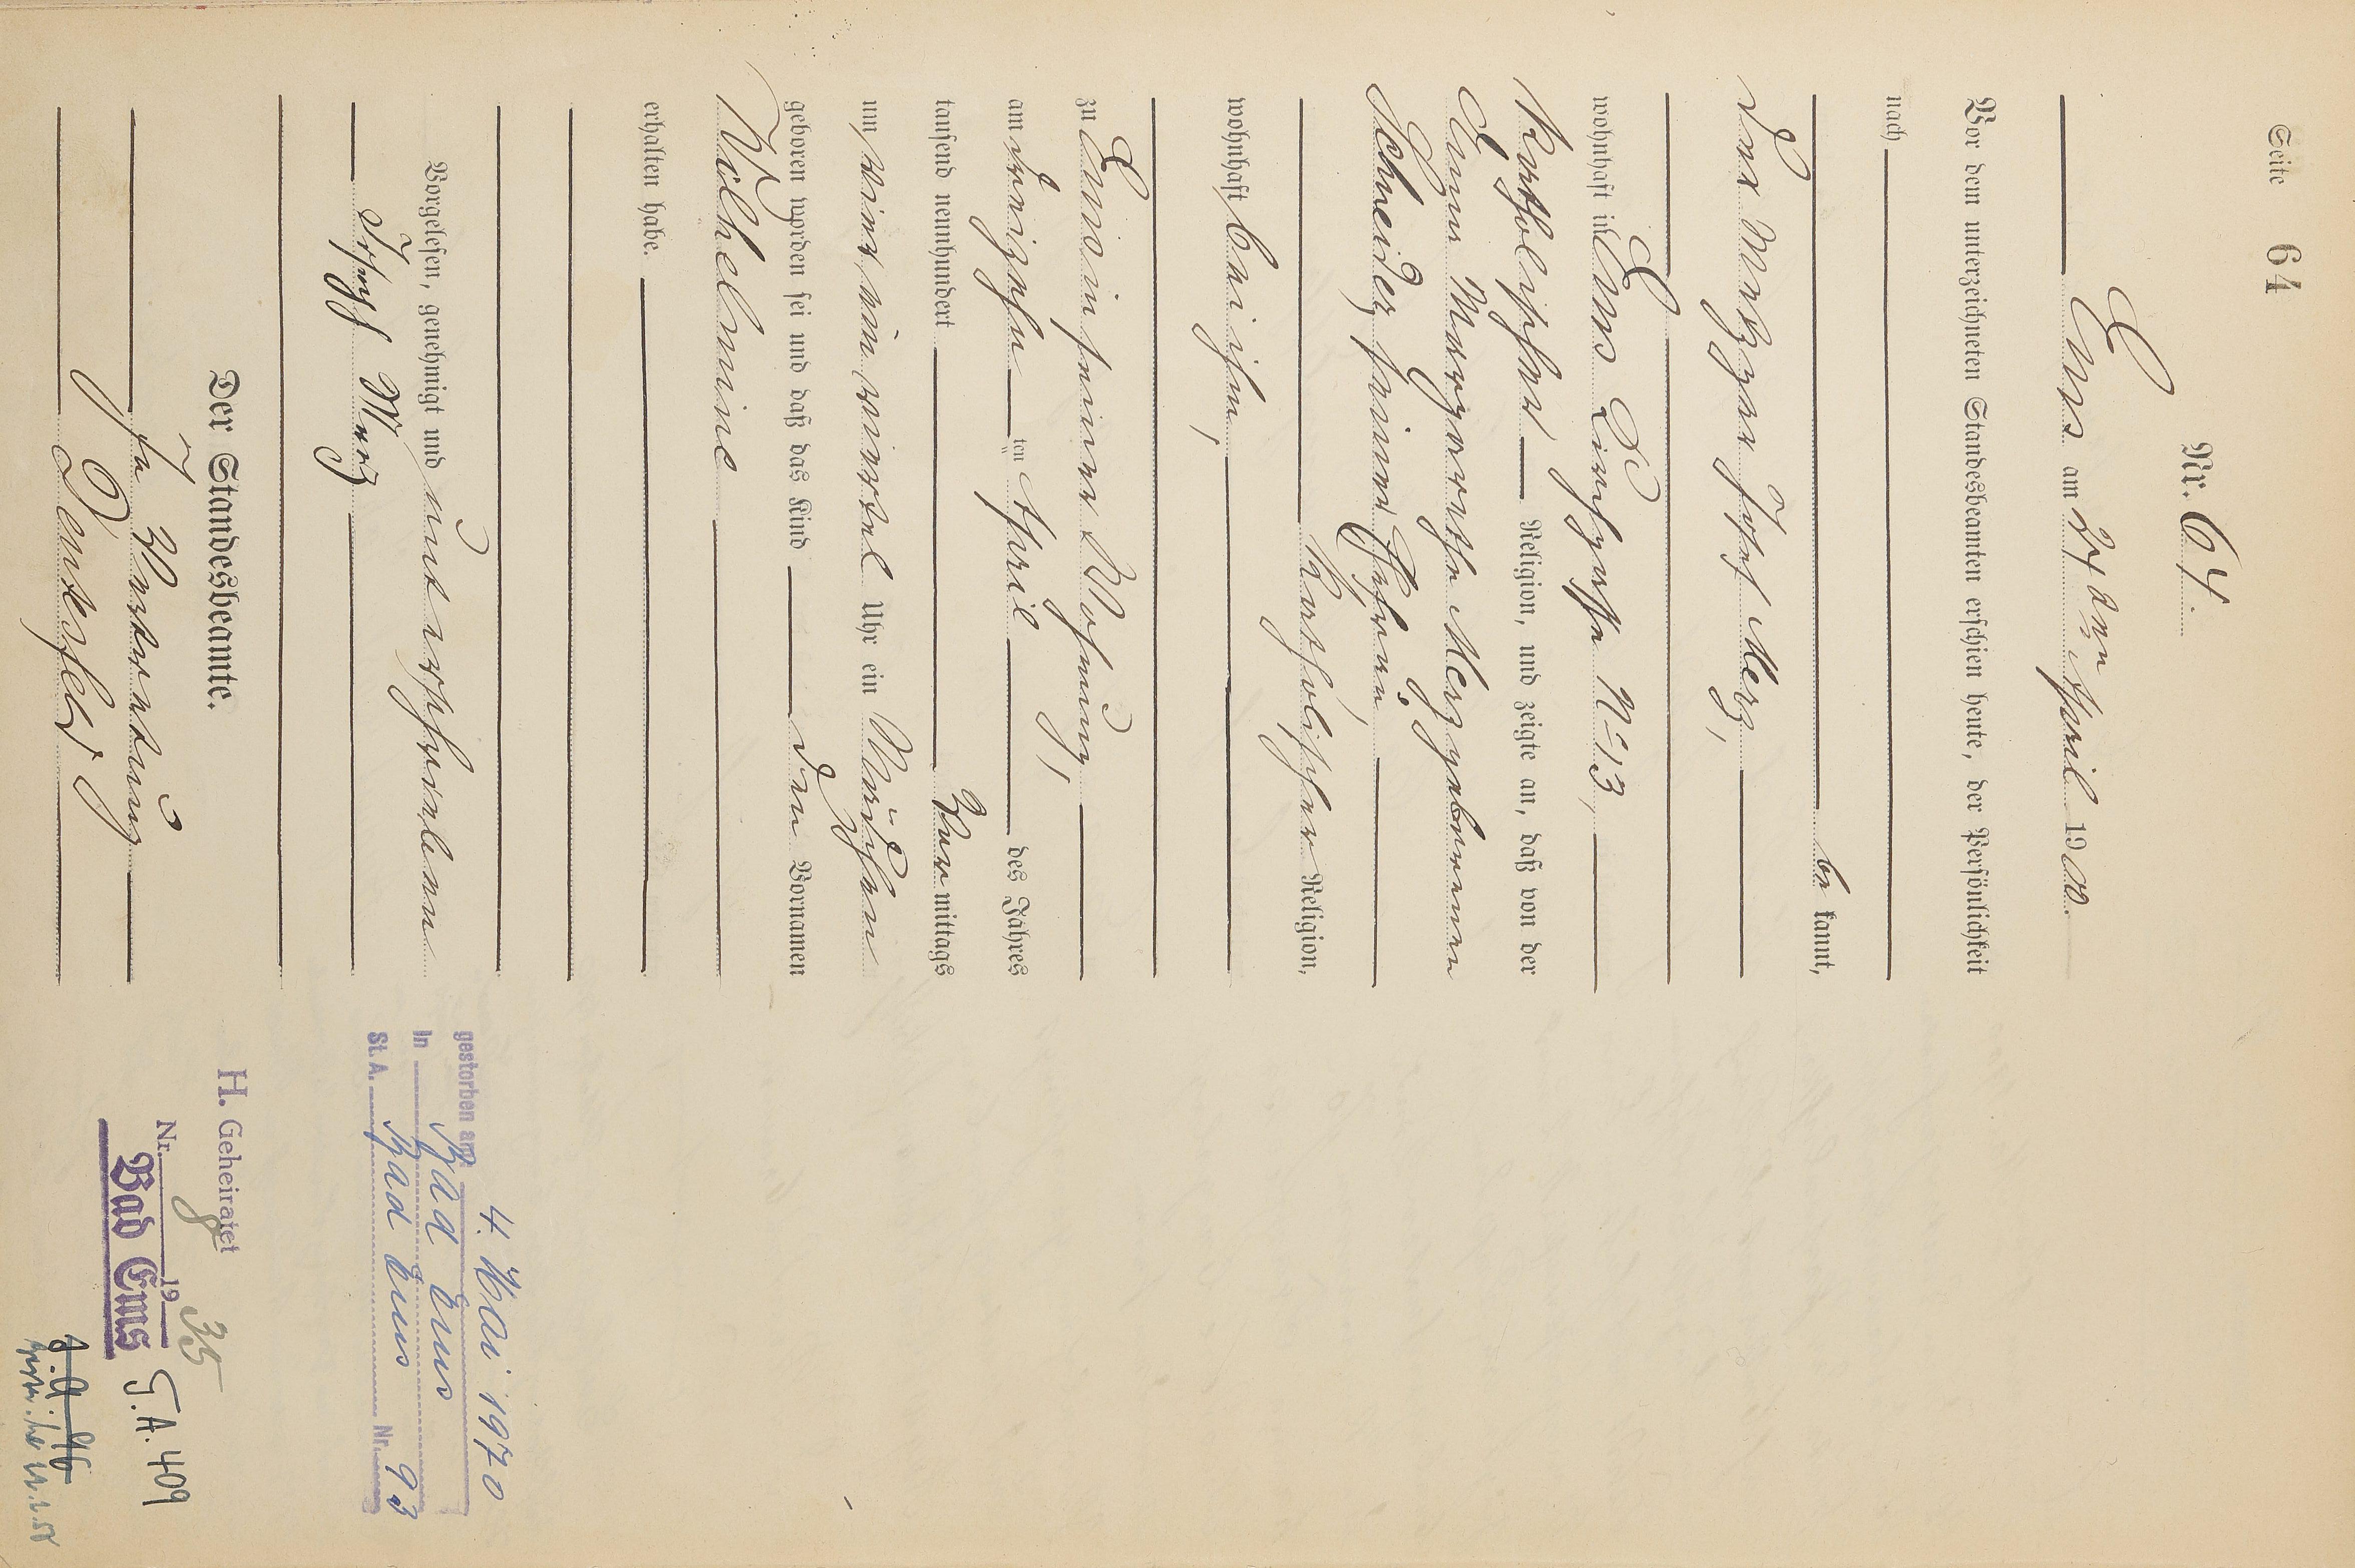 Seite 64
Nr. 64.
Ems am 17ten April 1900.
Vor dem unterzeichneten Standesbeamten erschien heute, der Persönlichkeit
nach
be kannt,
der Metzger Josef Merz,
wohnhaft in Ems
katholischer Religion, und zeigte an, daß von der
Anna Margarethe Merz geborenen
Schneider, seiner Ehefrau,
katholischer Religion,
wohnhaft bei ihm,
zu Ems in seiner Wohnung,
am dreizehn ten April des Jahres
tausend neunhundert Vor mittags
um vier ein viertel Uhr ein Mädchen
geboren worden sei und daß das Kind den Vornamen
Wilhelmine
erhalten habe.
Vorgelesen, genehmigt und unterschrieben
Joseph Merz
Der Standesbeamte.
In Vertretung
gestorben am 4. Mai 1970
in Bad Ems
St. A. Bad Ems Nr. 93
H. Geheiratet
Nr. 8 19 35
Bad Ems S.A. 409